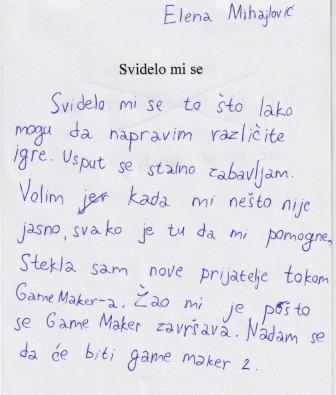 Elena Mihajlović
Svidelo mi se
Svidelo mi se to što lako
mogu da napravim različite
igre. Usput se stalno zabavljam.
Volim jer kada mi nešto nije
jasno, svako je tu da mi pomogne.
Stekla sam nove prijatelje tokom
Game Maker-a. Žao mi je pošto
se Game Maker završava. Nadam se
da će biti game maker 2.